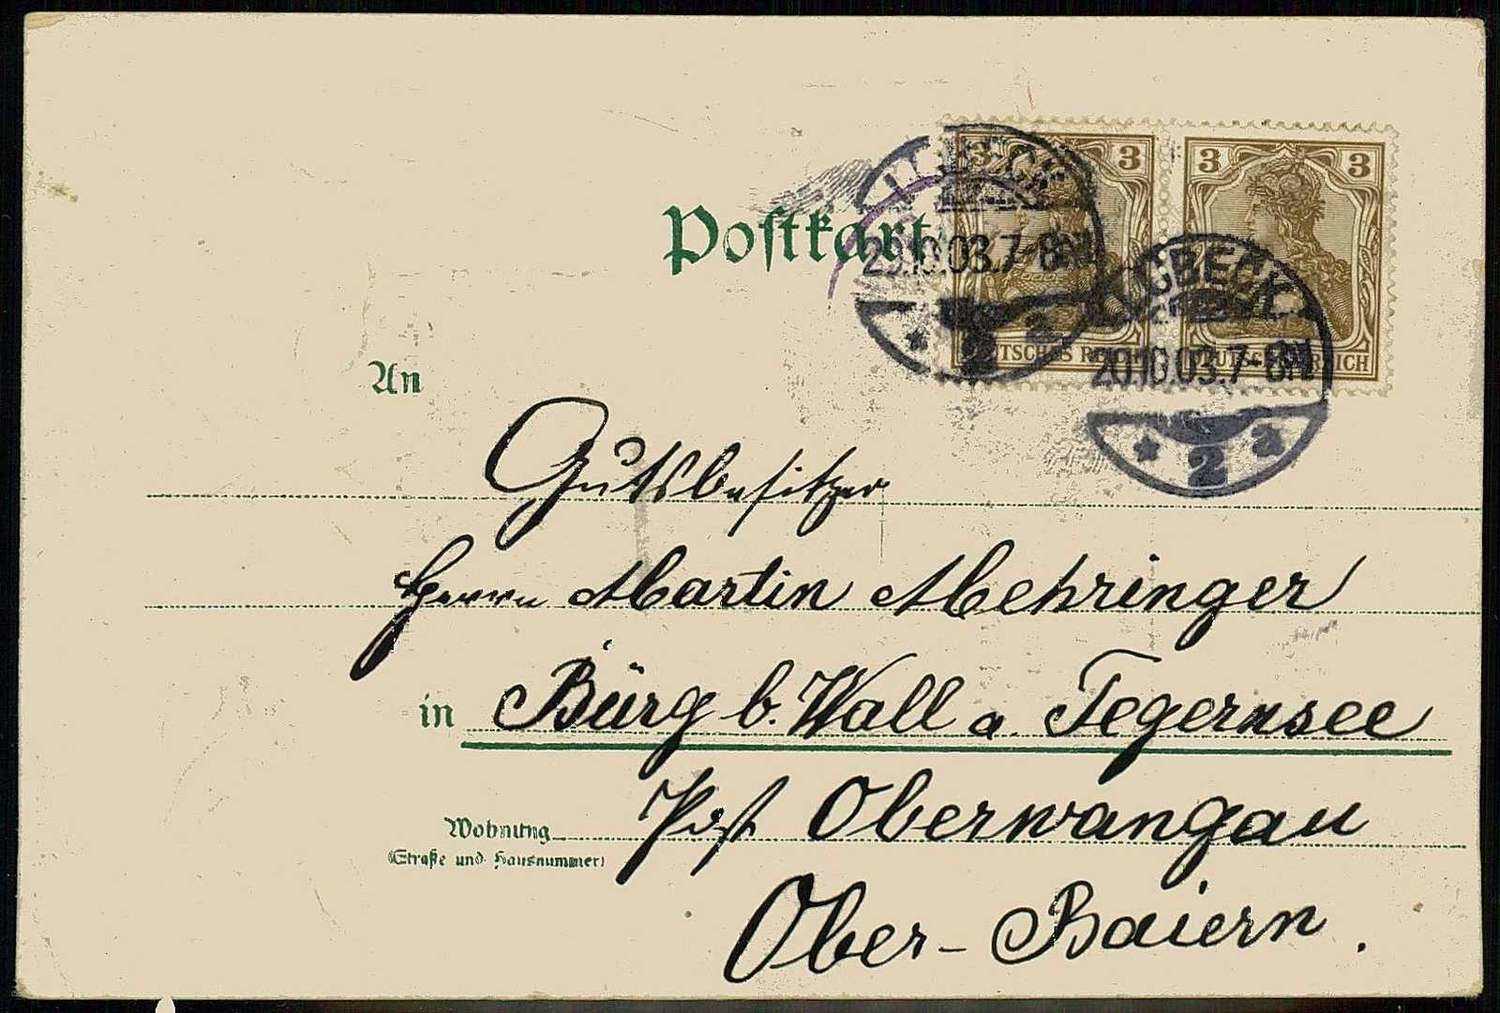 Postkarte
3 3 3 3
DEUTSCHES REICH DEUTSCHES REICH
LÜBECK
20.10.03.7-8N
* 2 a
LÜBECK
20.10.03.7-8N
* 2 a
An
Gutsbesitzer
Herrn Martin Mehringer
in Bürg b. Wall a. Tegernsee
Wohnung Post Oberwarngau
(Straße und Hausnummer)
Ober-Baiern.